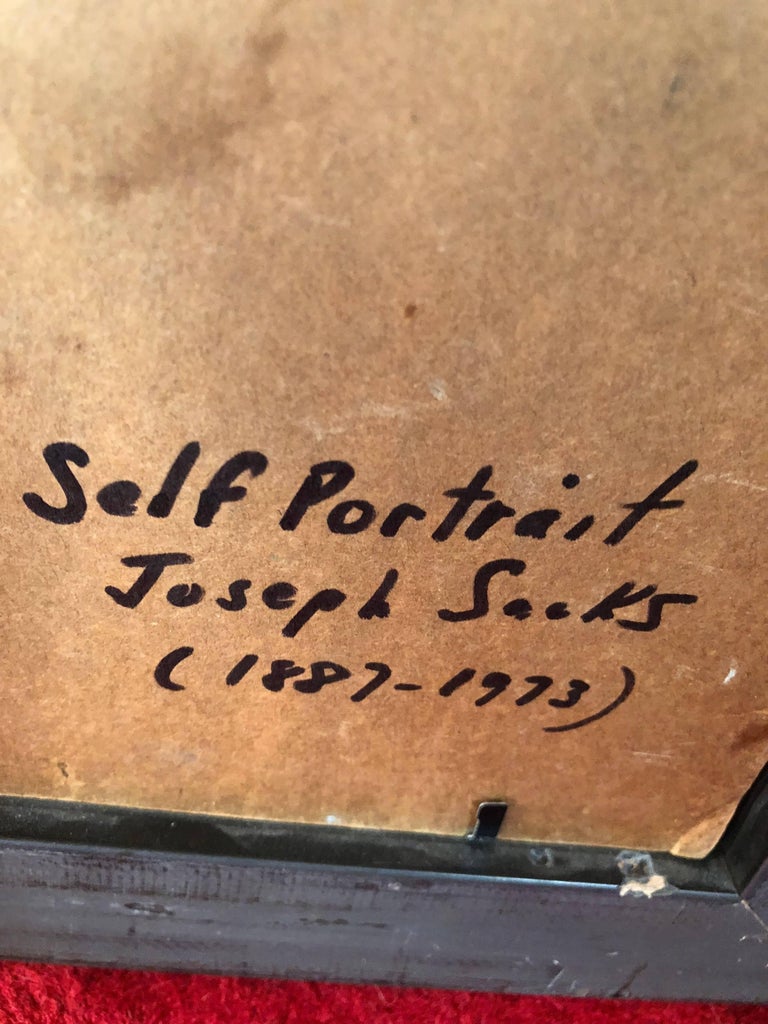 Self Portrait
Joseph Sacks
(1887-1973)